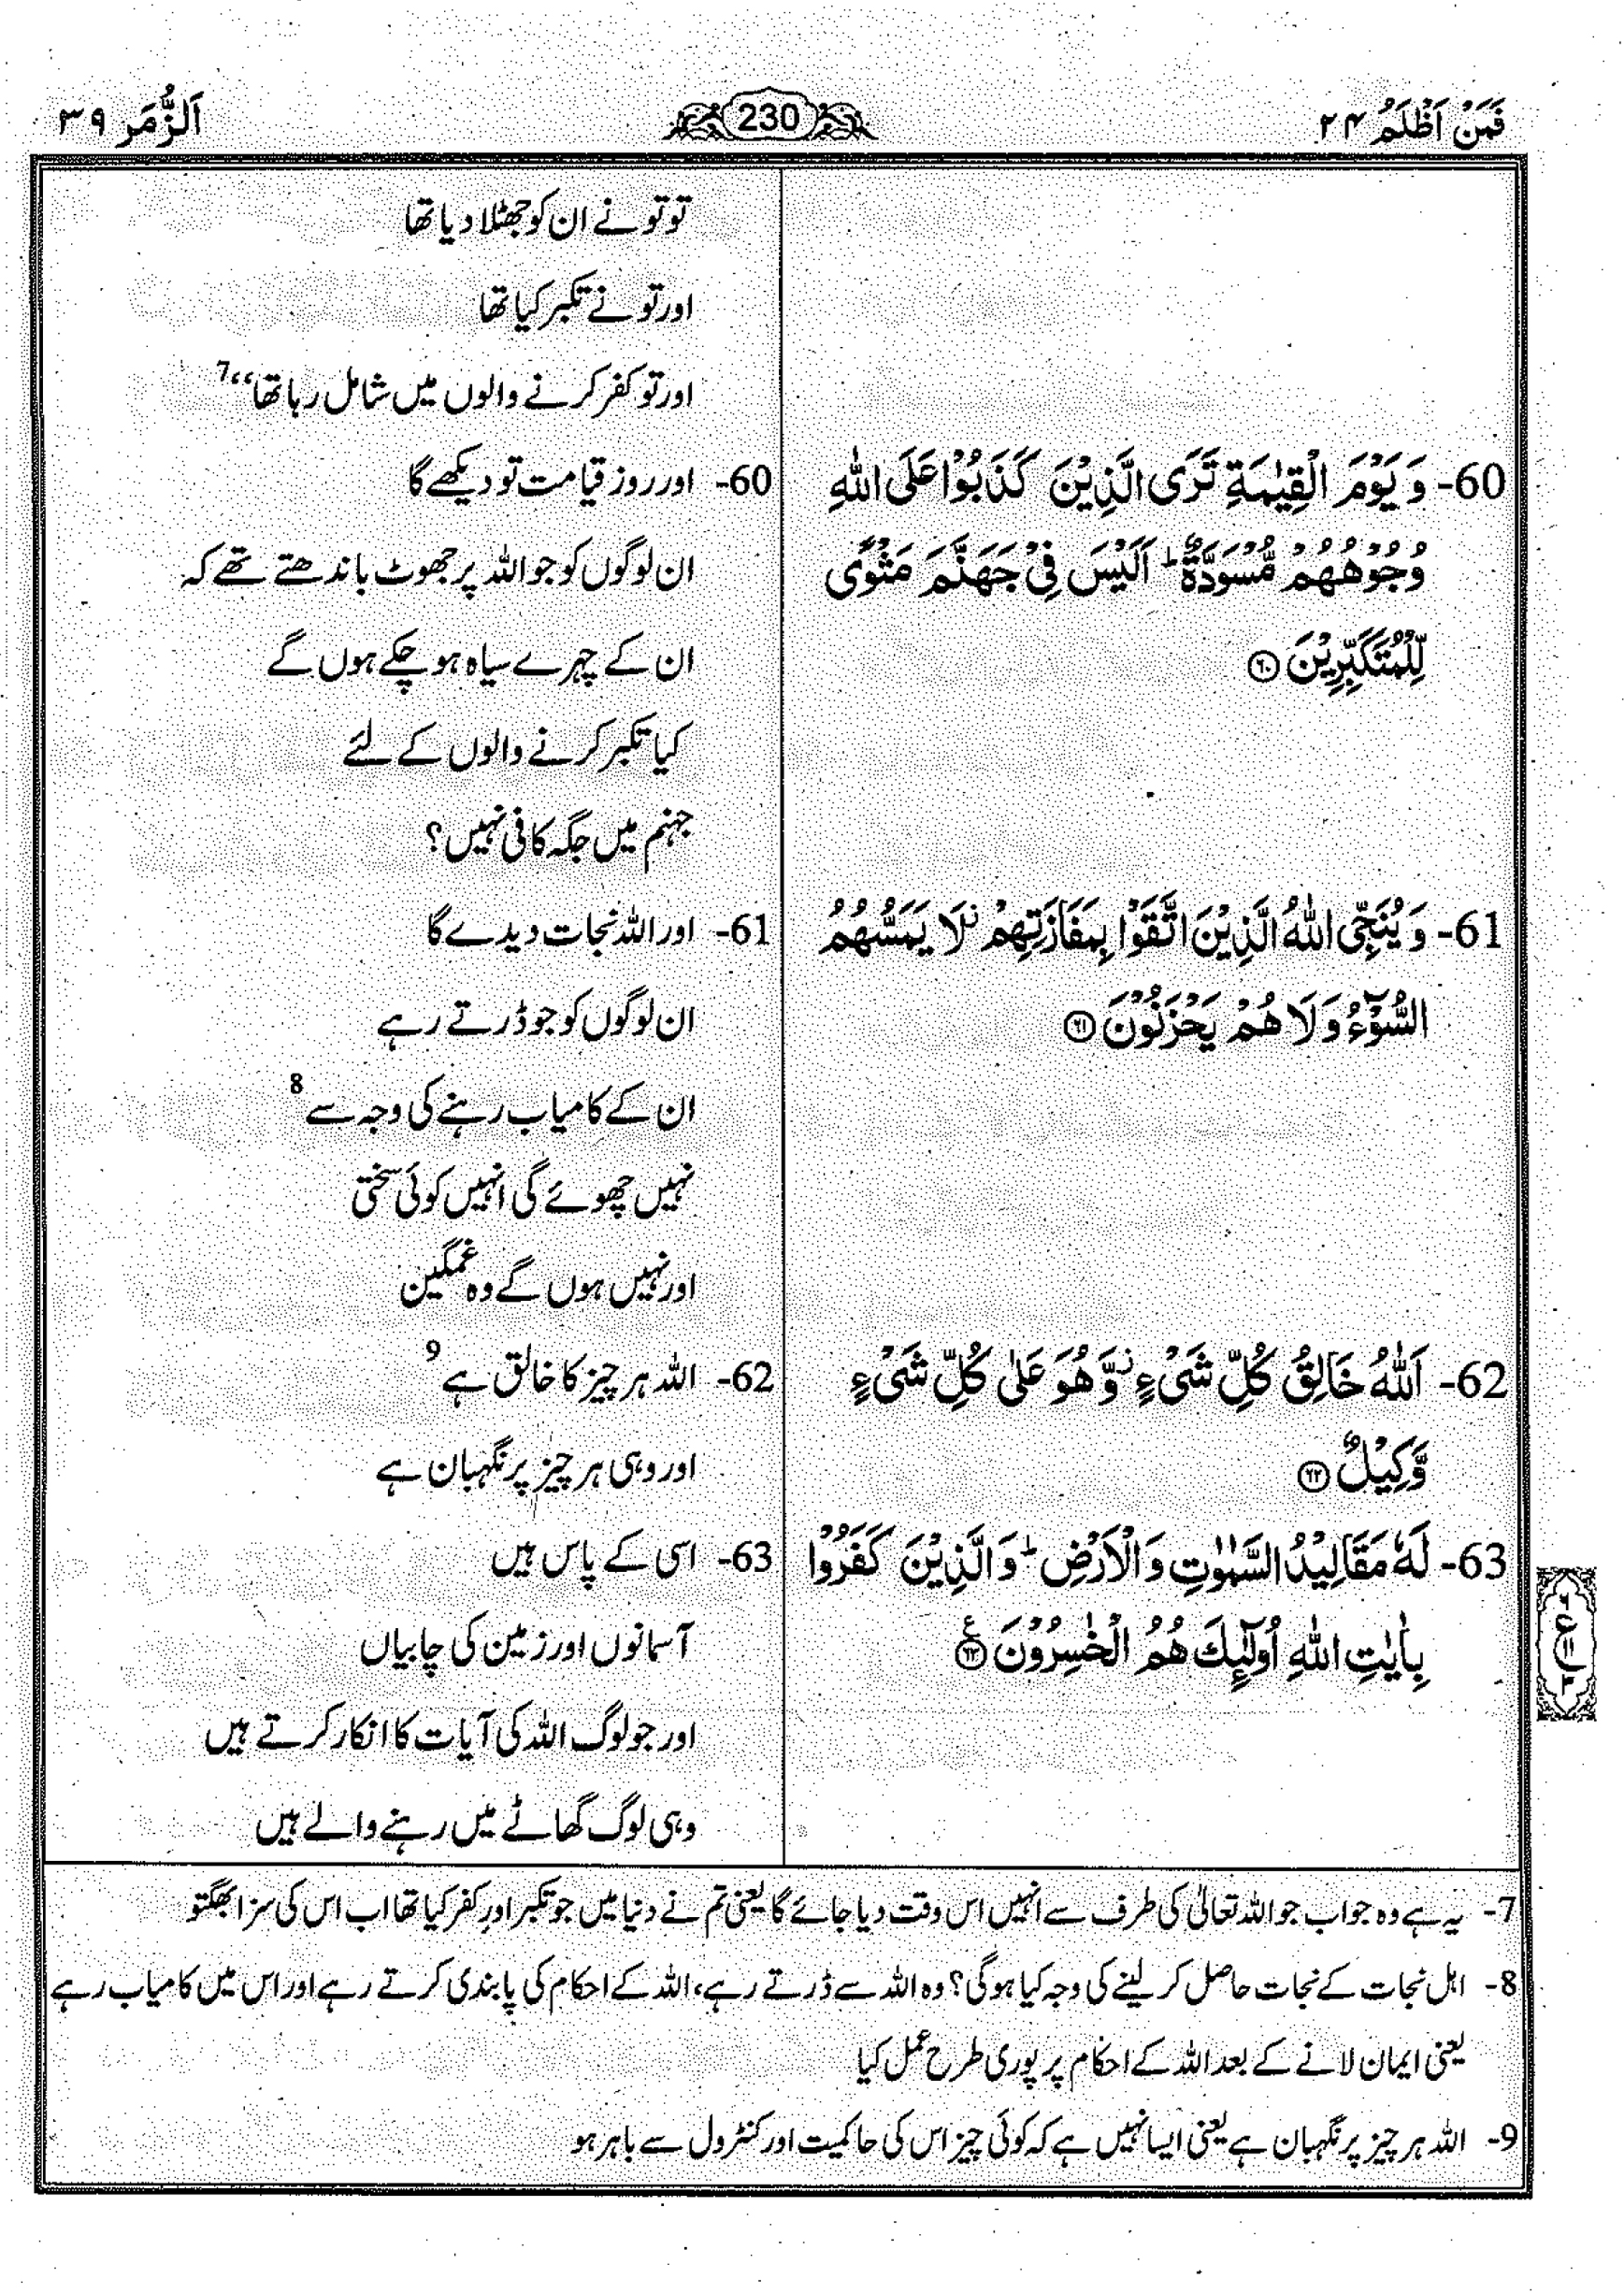 فَمَنْ اَظْلَمُ ۲۴
230
اَلزُّمَر ۳۹
تو تو نے ان کو جھٹلا دیا تھا
اور تو نے تکبر کیا تھا
اور تو کفر کرنے والوں میں شامل رہا تھا‘‘7
60- وَ يَوْمَ الْقِيٰمَةِ تَرَى الَّذِيْنَ كَذَبُوْا عَلَى اللّٰهِ
وُجُوْهُهُمْ مُّسْوَدَّةٌ ؕ اَلَيْسَ فِيْ جَهَنَّمَ مَثْوًى
لِّلْمُتَكَبِّرِيْنَ ﴿۶۰﴾
60- اور روز قیامت تو دیکھے گا
ان لوگوں کو جو اللہ پر جھوٹ باندھتے تھے کہ
ان کے چہرے سیاہ ہو چکے ہوں گے
کیا تکبر کرنے والوں کے لئے
جہنم میں جگہ کافی نہیں؟
61- وَ يُنَجِّي اللّٰهُ الَّذِيْنَ اتَّقَوْا بِمَفَازَتِهِمْ ؗ لَا يَمَسُّهُمُ
السُّوْٓءُ وَ لَا هُمْ يَحْزَنُوْنَ ﴿۶۱﴾
61- اور اللہ نجات دیدے گا
ان لوگوں کو جو ڈرتے رہے
ان کے کامیاب رہنے کی وجہ سے 8
نہیں چھوئے گی انہیں کوئی سختی
اور نہیں ہوں گے وہ غمگین
62- اَللّٰهُ خَالِقُ كُلِّ شَيْءٍ ؗ وَّ هُوَ عَلٰى كُلِّ شَيْءٍ
وَّكِيْلٌ ﴿۶۲﴾
62- اللہ ہر چیز کا خالق ہے 9
اور وہی ہر چیز پر نگہبان ہے
63- لَهٗ مَقَالِيْدُ السَّمٰوٰتِ وَ الْاَرْضِ ؕ وَ الَّذِيْنَ كَفَرُوْا
بِاٰيٰتِ اللّٰهِ اُولٰٓئِكَ هُمُ الْخٰسِرُوْنَ ﴿۶۳﴾ ع
63- اسی کے پاس ہیں
آسمانوں اور زمین کی چابیاں
اور جو لوگ اللہ کی آیات کا انکار کرتے ہیں
وہی لوگ گھاٹے میں رہنے والے ہیں
7- یہ ہے وہ جواب جو اللہ تعالیٰ کی طرف سے انہیں اس وقت دیا جائے گا یعنی تم نے دنیا میں جو تکبر اور کفر کیا تھا اب اس کی سزا بھگتو
8- اہل نجات کے نجات حاصل کر لینے کی وجہ کیا ہوگی؟ وہ اللہ سے ڈرتے رہے، اللہ کے احکام کی پابندی کرتے رہے اور اس میں کامیاب رہے
یعنی ایمان لانے کے بعد اللہ کے احکام پر پوری طرح عمل کیا
9- اللہ ہر چیز پر نگہبان ہے یعنی ایسا نہیں ہے کہ کوئی چیز اس کی حاکمیت اور کنٹرول سے باہر ہو